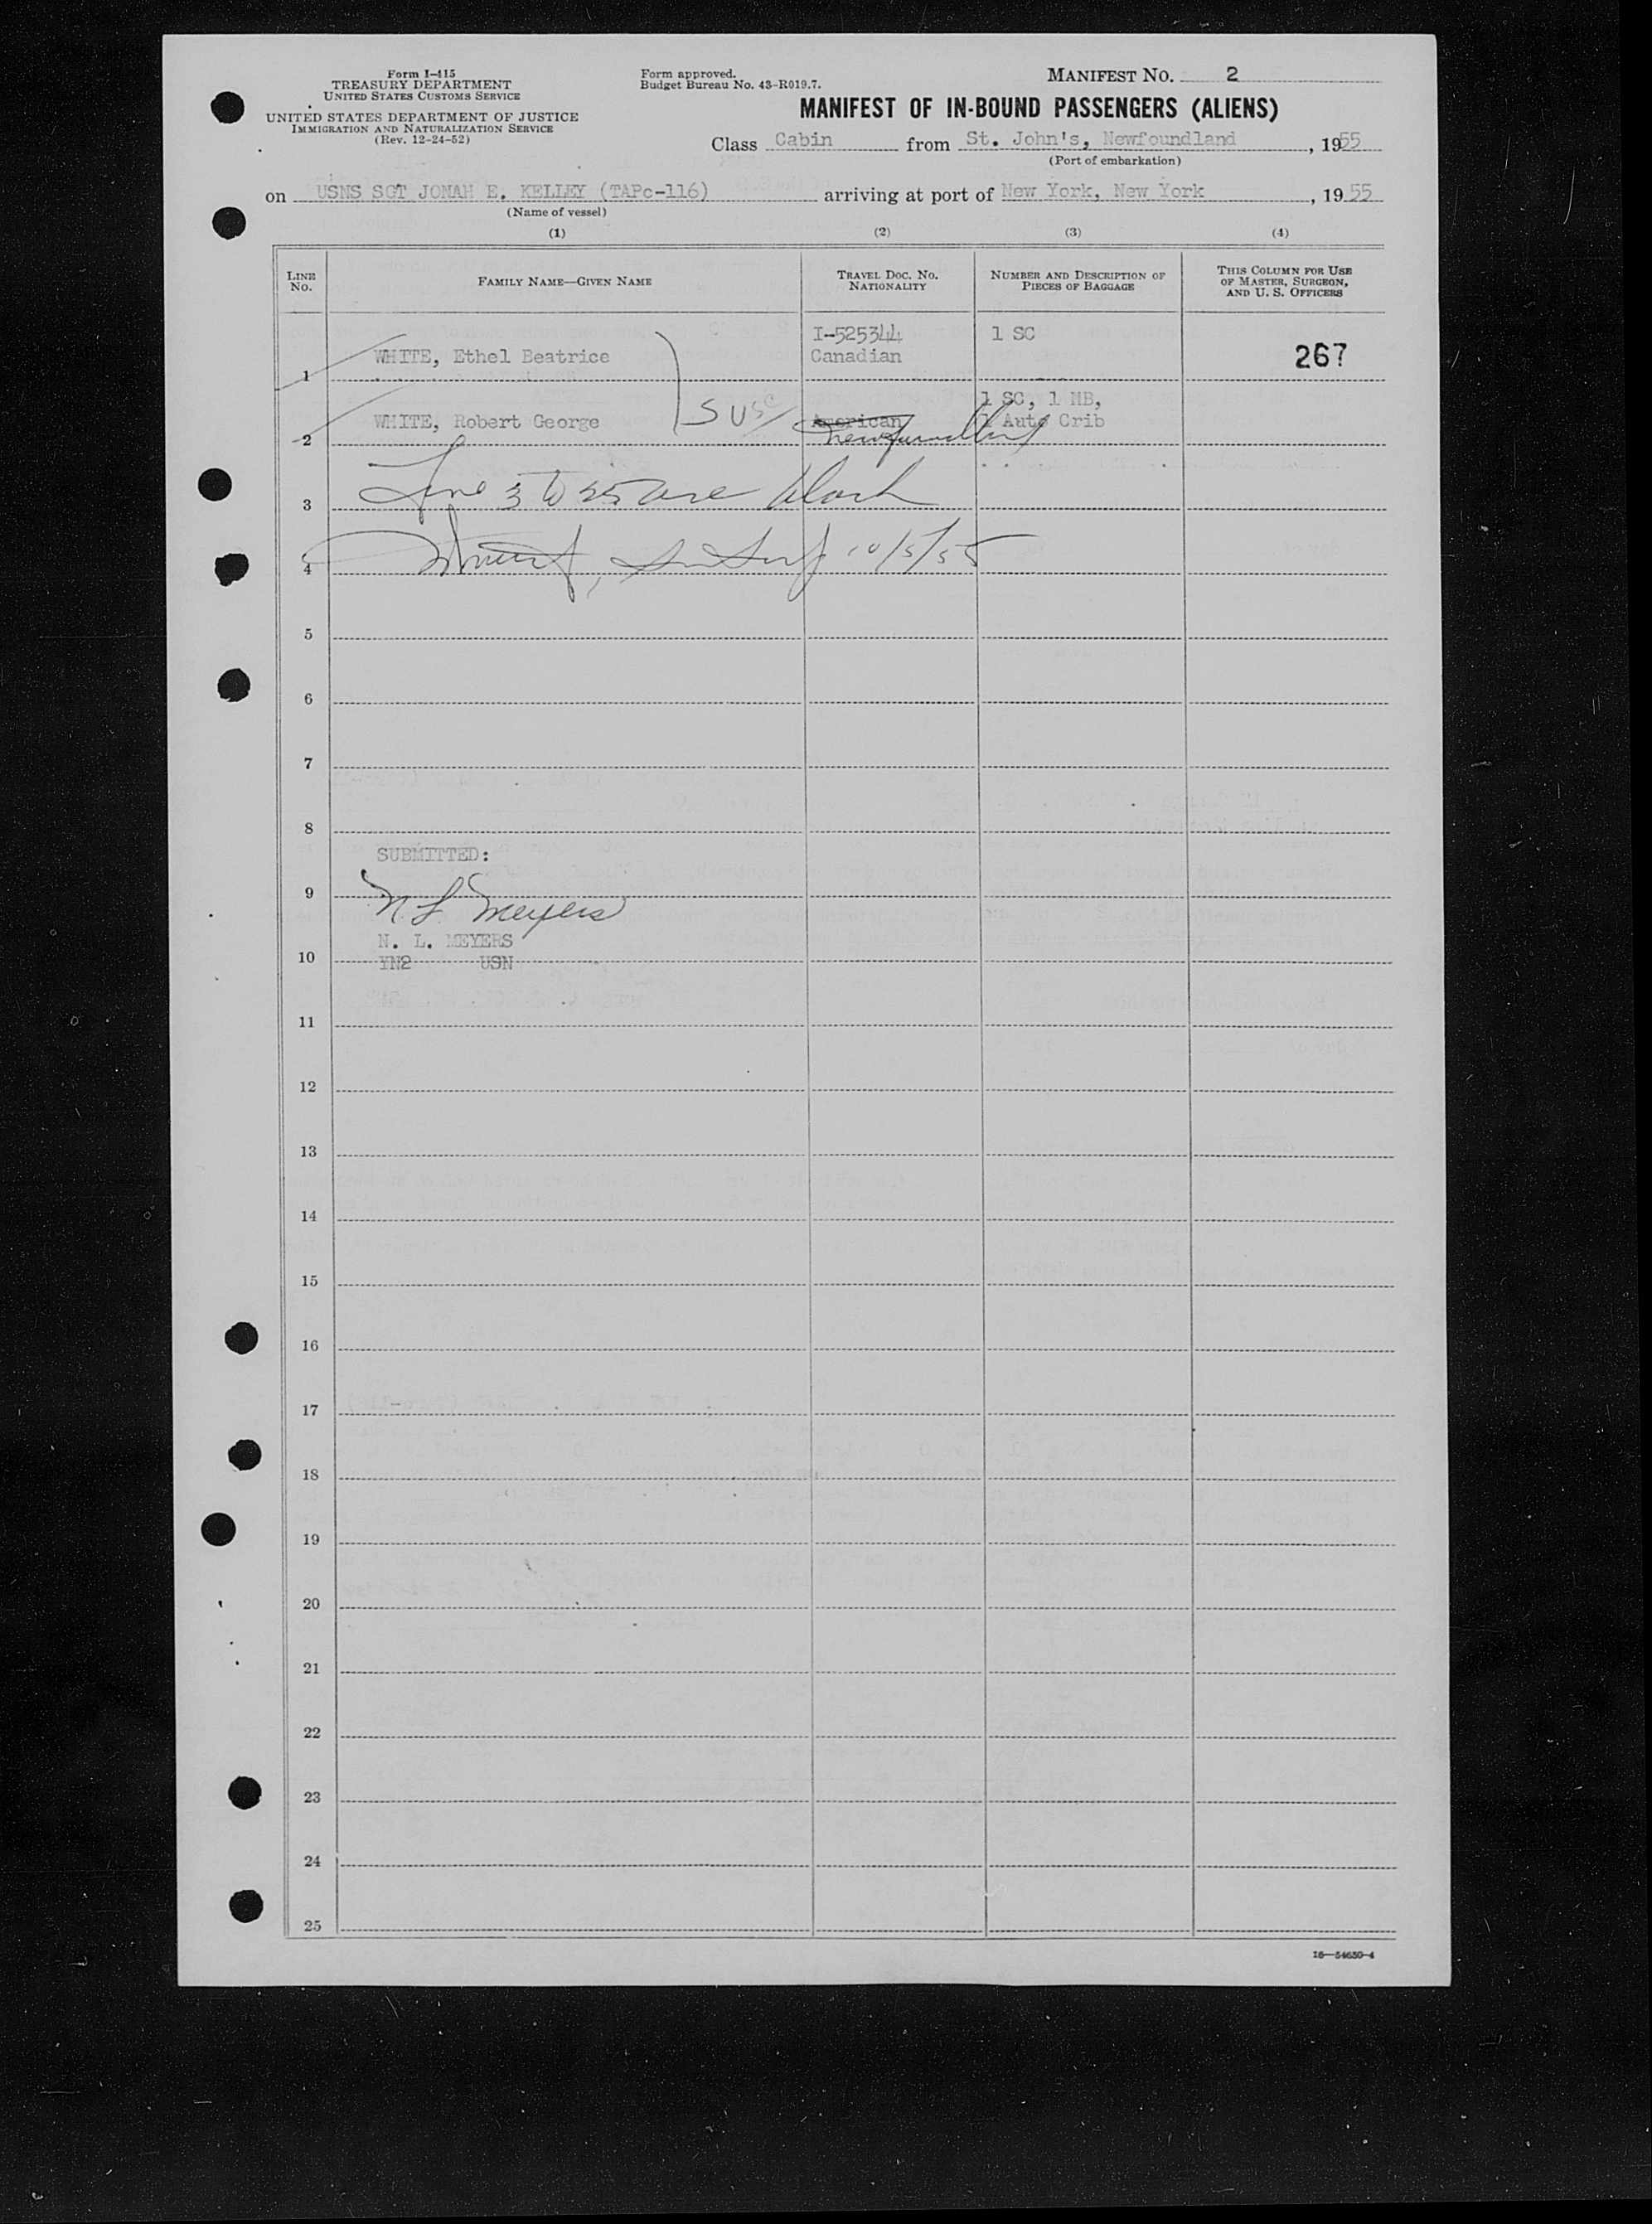 Form I-415
TREASURY DEPARTMENT
UNITED STATES CUSTOMS SERVICE
UNITED STATES DEPARTMENT OF JUSTICE
IMMIGRATION AND NATURALIZATION SERVICE
(Rev. 12-24-52)
Form approved.
Budget Bureau No. 43-R019.7.
MANIFEST NO. 2
MANIFEST OF IN-BOUND PASSENGERS (ALIENS)
Class Cabin from St. John's, Newfoundland, 1955
(Port of embarkation)
on USNS SGT JONAH E. KELLEY (TAPc-116) arriving at port of New York, New York, 1955
(Name of vessel)
(1) (2) (3) (4)
LINE NO. FAMILY NAME—GIVEN NAME TRAVEL DOC. NO. NATIONALITY NUMBER AND DESCRIPTION OF PIECES OF BAGGAGE THIS COLUMN FOR USE OF MASTER, SURGEON, AND U. S. OFFICERS
I-525344 1 SC
WHITE, Ethel Beatrice Canadian 267
1
1 SC, 1 HB,
WHITE, Robert George American Auto Crib
2 Newfoundland
3 Line 3 to 25 are blank
4 10/5/55
5
6
7
8
SUBMITTED:
9 N L Meyers
N. L. MEYERS
10 YN2 USN
11
12
13
14
15
16
17
18
19
20
21
22
23
24
25
16—54630-4